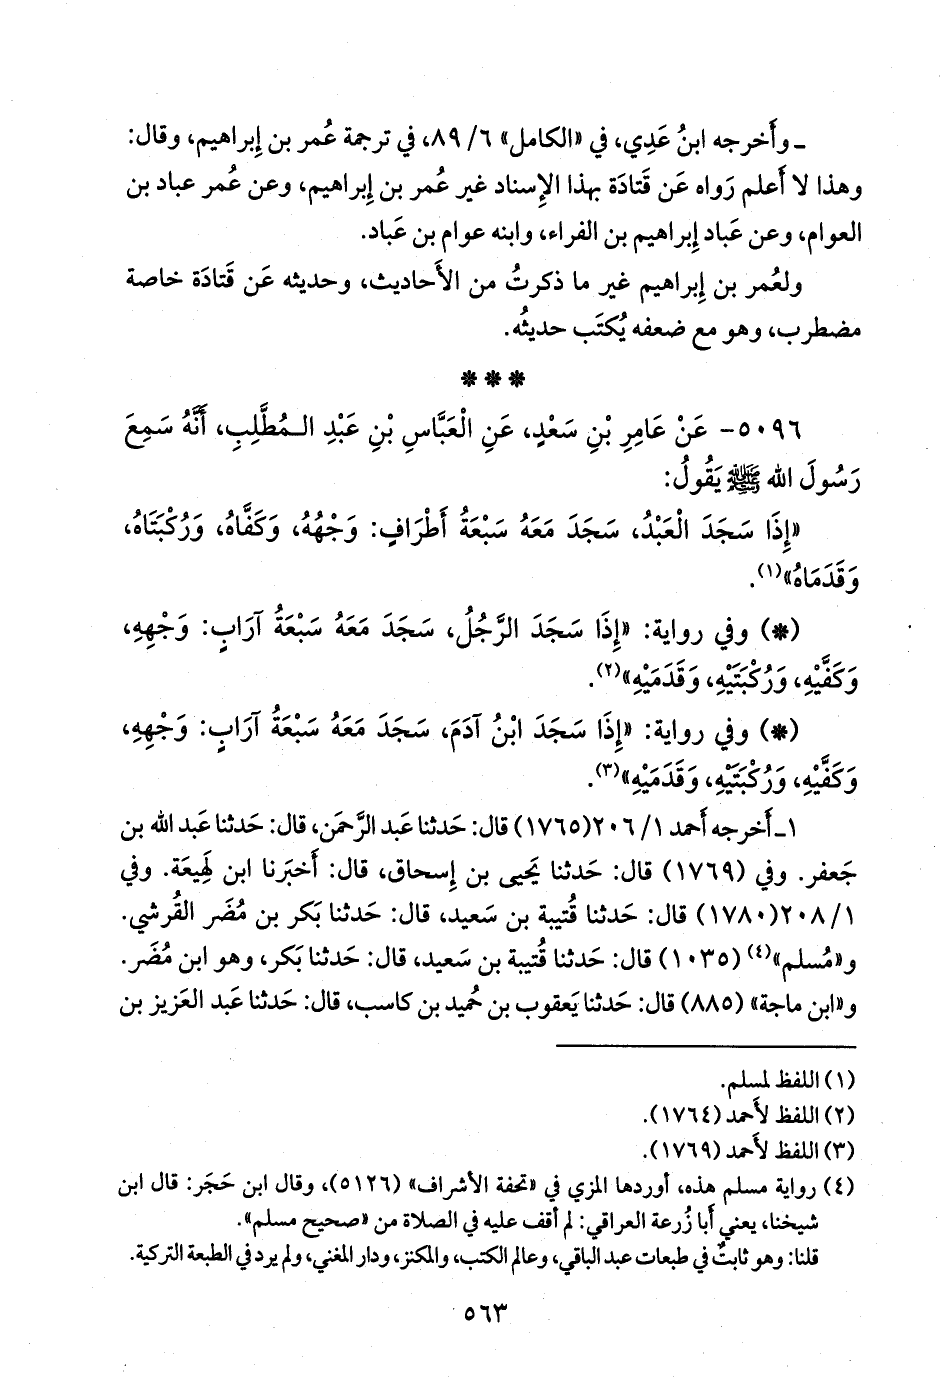 ـ وأَخرجه ابنُ عَدِي، في «الكامل» ٦/ ٨٩، في ترجمة عُمر بن إِبراهيم، وقال:
وهذا لا أَعلم رَواه عَن قَتادَة بهذا الإِسناد غير عُمر بن إِبراهيم، وعن عُمر عباد بن
العوام، وعن عَباد إِبراهيم بن الفراء، وابنه عوام بن عَباد.
ولعُمر بن إِبراهيم غير ما ذكرتُ من الأَحاديث، وحديثه عَن قَتادَة خاصة
مضطرب، وهو مع ضعفه يُكتَب حديثُه.
***
٥٠٩٦- عَنْ عَامِرِ بْنِ سَعْدٍ، عَنِ الْعَبَّاسِ بْنِ عَبْدِ الـمُطَّلِبِ، أَنَّهُ سَمِعَ
رَسُولَ الله ﷺ يَقُولُ:
«إِذَا سَجَدَ الْعَبْدُ، سَجَدَ مَعَهُ سَبْعَةُ أَطْرَافٍ: وَجْهُهُ، وَكَفَّاهُ، وَرُكْبَتَاهُ،
وَقَدَمَاهُ»(١).
(*) وفي رواية: «إِذَا سَجَدَ الرَّجُلُ، سَجَدَ مَعَهُ سَبْعَةُ آرَابٍ: وَجْهِهِ،
وَكَفَّيْهِ، وَرُكْبَتَيْهِ، وَقَدَمَيْهِ»(٢).
(*) وفي رواية: «إِذَا سَجَدَ ابْنُ آدَمَ، سَجَدَ مَعَهُ سَبْعَةُ آرَابٍ: وَجْهِهِ،
وَكَفَّيْهِ، وَرُكْبَتَيْهِ، وَقَدَمَيْهِ»(٣).
١ـ أَخرجه أَحمد ١/ ٢٠٦(١٧٦٥) قال: حَدثنا عَبد الرَّحمَن، قال: حَدثنا عَبد الله بن
جَعفر. وفي (١٧٦٩) قال: حَدثنا يَحيى بن إِسحاق، قال: أَخبَرنا ابن لَهِيعَة. وفي
١/ ٢٠٨(١٧٨٠) قال: حَدثنا قُتيبة بن سَعيد، قال: حَدثنا بَكر بن مُضَر القُرشي.
و«مُسلم»(٤) (١٠٣٥) قال: حَدثنا قُتيبة بن سَعيد، قال: حَدثنا بَكر، وهو ابن مُضَر.
و«ابن ماجة» (٨٨٥) قال: حَدثنا يَعقوب بن حُميد بن كاسب، قال: حَدثنا عَبد العَزيز بن
(١) اللفظ لمسلم.
(٢) اللفظ لأَحمد (١٧٦٤).
(٣) اللفظ لأَحمد (١٧٦٩).
(٤) رواية مسلم هذه، أوردها المزي في «تحفة الأشراف» (٥١٢٦)، وقال ابن حَجَر: قال ابن
شيخنا، يعني أَبا زُرعة العراقي: لم أقف عليه في الصلاة من «صحيح مسلم».
قلنا: وهو ثابتٌ في طبعات عبد الباقي، وعالم الكتب، والمكنز، ودار المغني، ولم يرد في الطبعة التركية.
٥٦٣